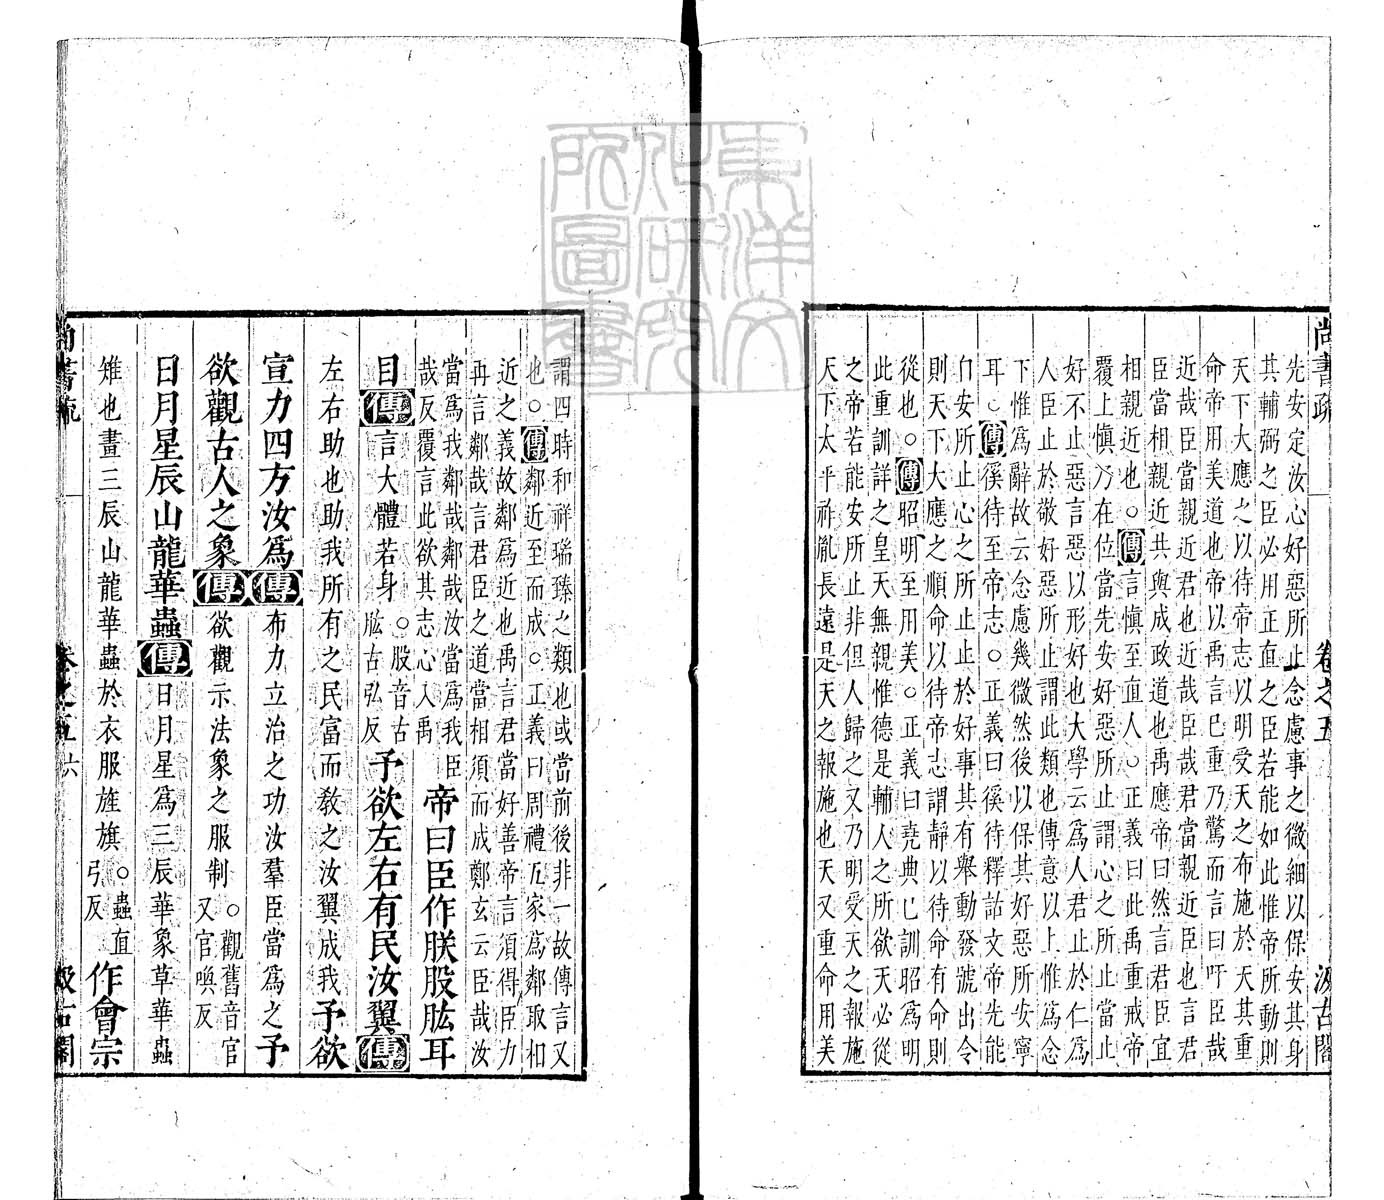 尚書疏 卷之五 汲古閣
先安定汝心好惡所止念慮事之微細以保安其身
其輔弼之臣必用正直之臣若能如此惟帝所動則
天下大應之以待帝志以明受天之布施於天其重
命帝用美道也帝以禹言已重乃驚而言曰吁臣哉
近哉臣當親近君也近哉臣哉君當親近臣也言君
臣當相親近共與成政道也禹應帝曰然言君臣宜
相親近也○傳言慎至直人○正義曰此禹重戒帝
覆上慎乃在位當先安好惡所止謂心之所止當止
好不止惡言惡以形好也大學云爲人君止於仁爲
人臣止於敬好惡所止謂此類也傳意以上惟爲念
下惟爲辭故云念慮幾微然後以保其好惡所安寧
耳○傳徯待至帝志○正義曰徯待釋詁文帝先能
自安所止心之所止止於好事其有舉動發號出令
則天下大應之順命以待帝志謂靜以待命有命則
從也○傳昭明至用美○正義曰堯典已訓昭爲明
此重訓詳之皇天無親惟德是輔人之所欲天必從
之帝若能安所止非但人歸之又乃明受天之報施
天下太平祚胤長遠是天之報施也天又重命用美
謂四時和祥瑞臻之類也或當前後非一故傳言又
也○傳鄰近至而成○正義曰周禮五家爲鄰取相
近之義故鄰爲近也禹言君當好善帝言須得臣力
再言鄰哉言君臣之道當相須而成鄭玄云臣哉汝
當爲我鄰哉鄰哉汝當爲我臣
哉反覆言此欲其志心入禹
帝曰臣作朕股肱耳
目傳言大體若身○股音古肱古弘反予欲左右有民汝翼傳
左右助也助我所有之民富而教之汝翼成我予欲
宣力四方汝爲傳布力立治之功汝羣臣當爲之予
欲觀古人之象傳欲觀示法象之服制○觀舊音官又官喚反
日月星辰山龍華蟲傳日月星爲三辰華象草華蟲
雉也畫三辰山龍華蟲於衣服旌旗○蟲直弓反作會宗
尚書疏 卷之五 六 汲古閣
東洋文化研究院圖書